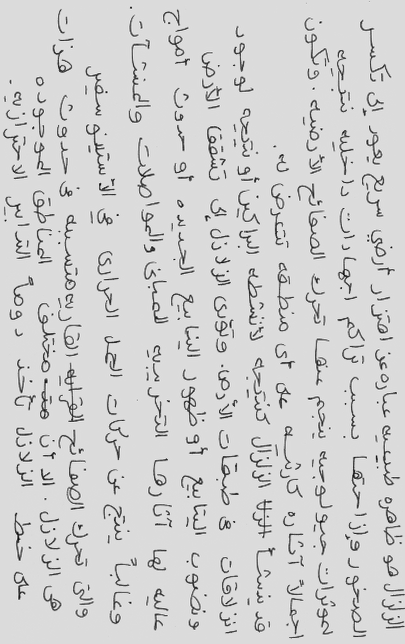 الزلزال هو ظاهره طبيعيه عباره عن اهتزاز أرضي سريع يعود إلى تكسر
الصخور وإزاحتها بسبب تراكم اجهادات داخليه نتيجه
لمؤثرات جيولوجيه ينجم عنها تحرك الصفائح الأرضيه. وتكون
اجمالاً آثاره كارثيه على أى منطقه تتعرض له.
قد ينشأ الزلزال كنتيجه لأنشطه البراكين أو نتيجه لوجود
انزلاقات فى طبقات الأرض. وتؤدى الزلازل إلى تشقق الأرض
ونضوب الينابيع أو ظهور الينابيع الجديده أو حدوث أمواج
عاليه لها آثارها التخريبيه للمبانى والمواصلات والمنشآت.
وغالباً ينتج عن حركات الحمل الحرارى في الأستينوسفير
والتى تحرك الصفائح القاريه متسببه فى حدوث هزات
هى الزلازل. الأن مختلف المناطق الموجوده
على خط الزلازل تأخذ دوماً التدابير الاحترازيه.